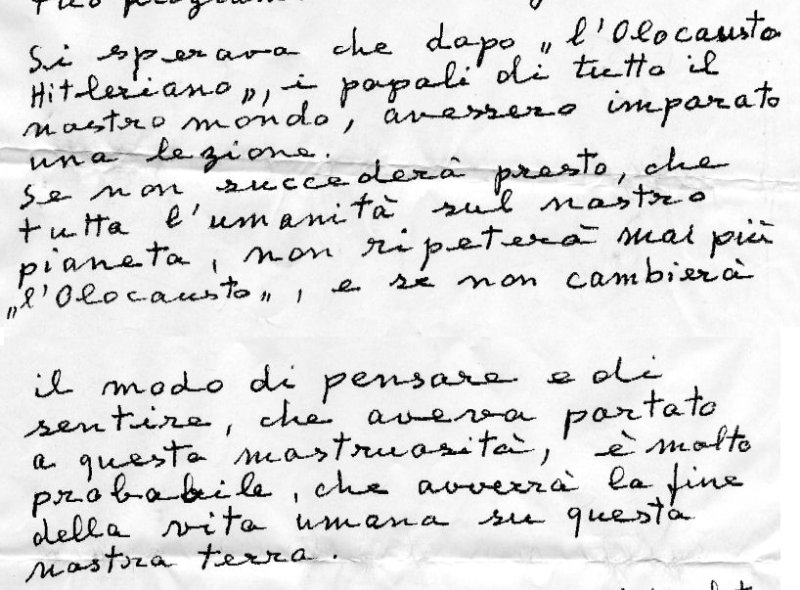 Si sperava che dopo „l'Olocausto
Hitleriano„, i popoli di tutto il
nostro mondo, avessero imparato
una lezione.
Se non succederà presto, che
tutta l'umanità sul nostro
pianeta, non ripeterà mai più
„l'Olocausto„, e se non cambierà
il modo di pensare e di
sentire, che aveva portato
a questa mostruosità, è molto
probabile, che avverrà la fine
della vita umana su questa
nostra terra.